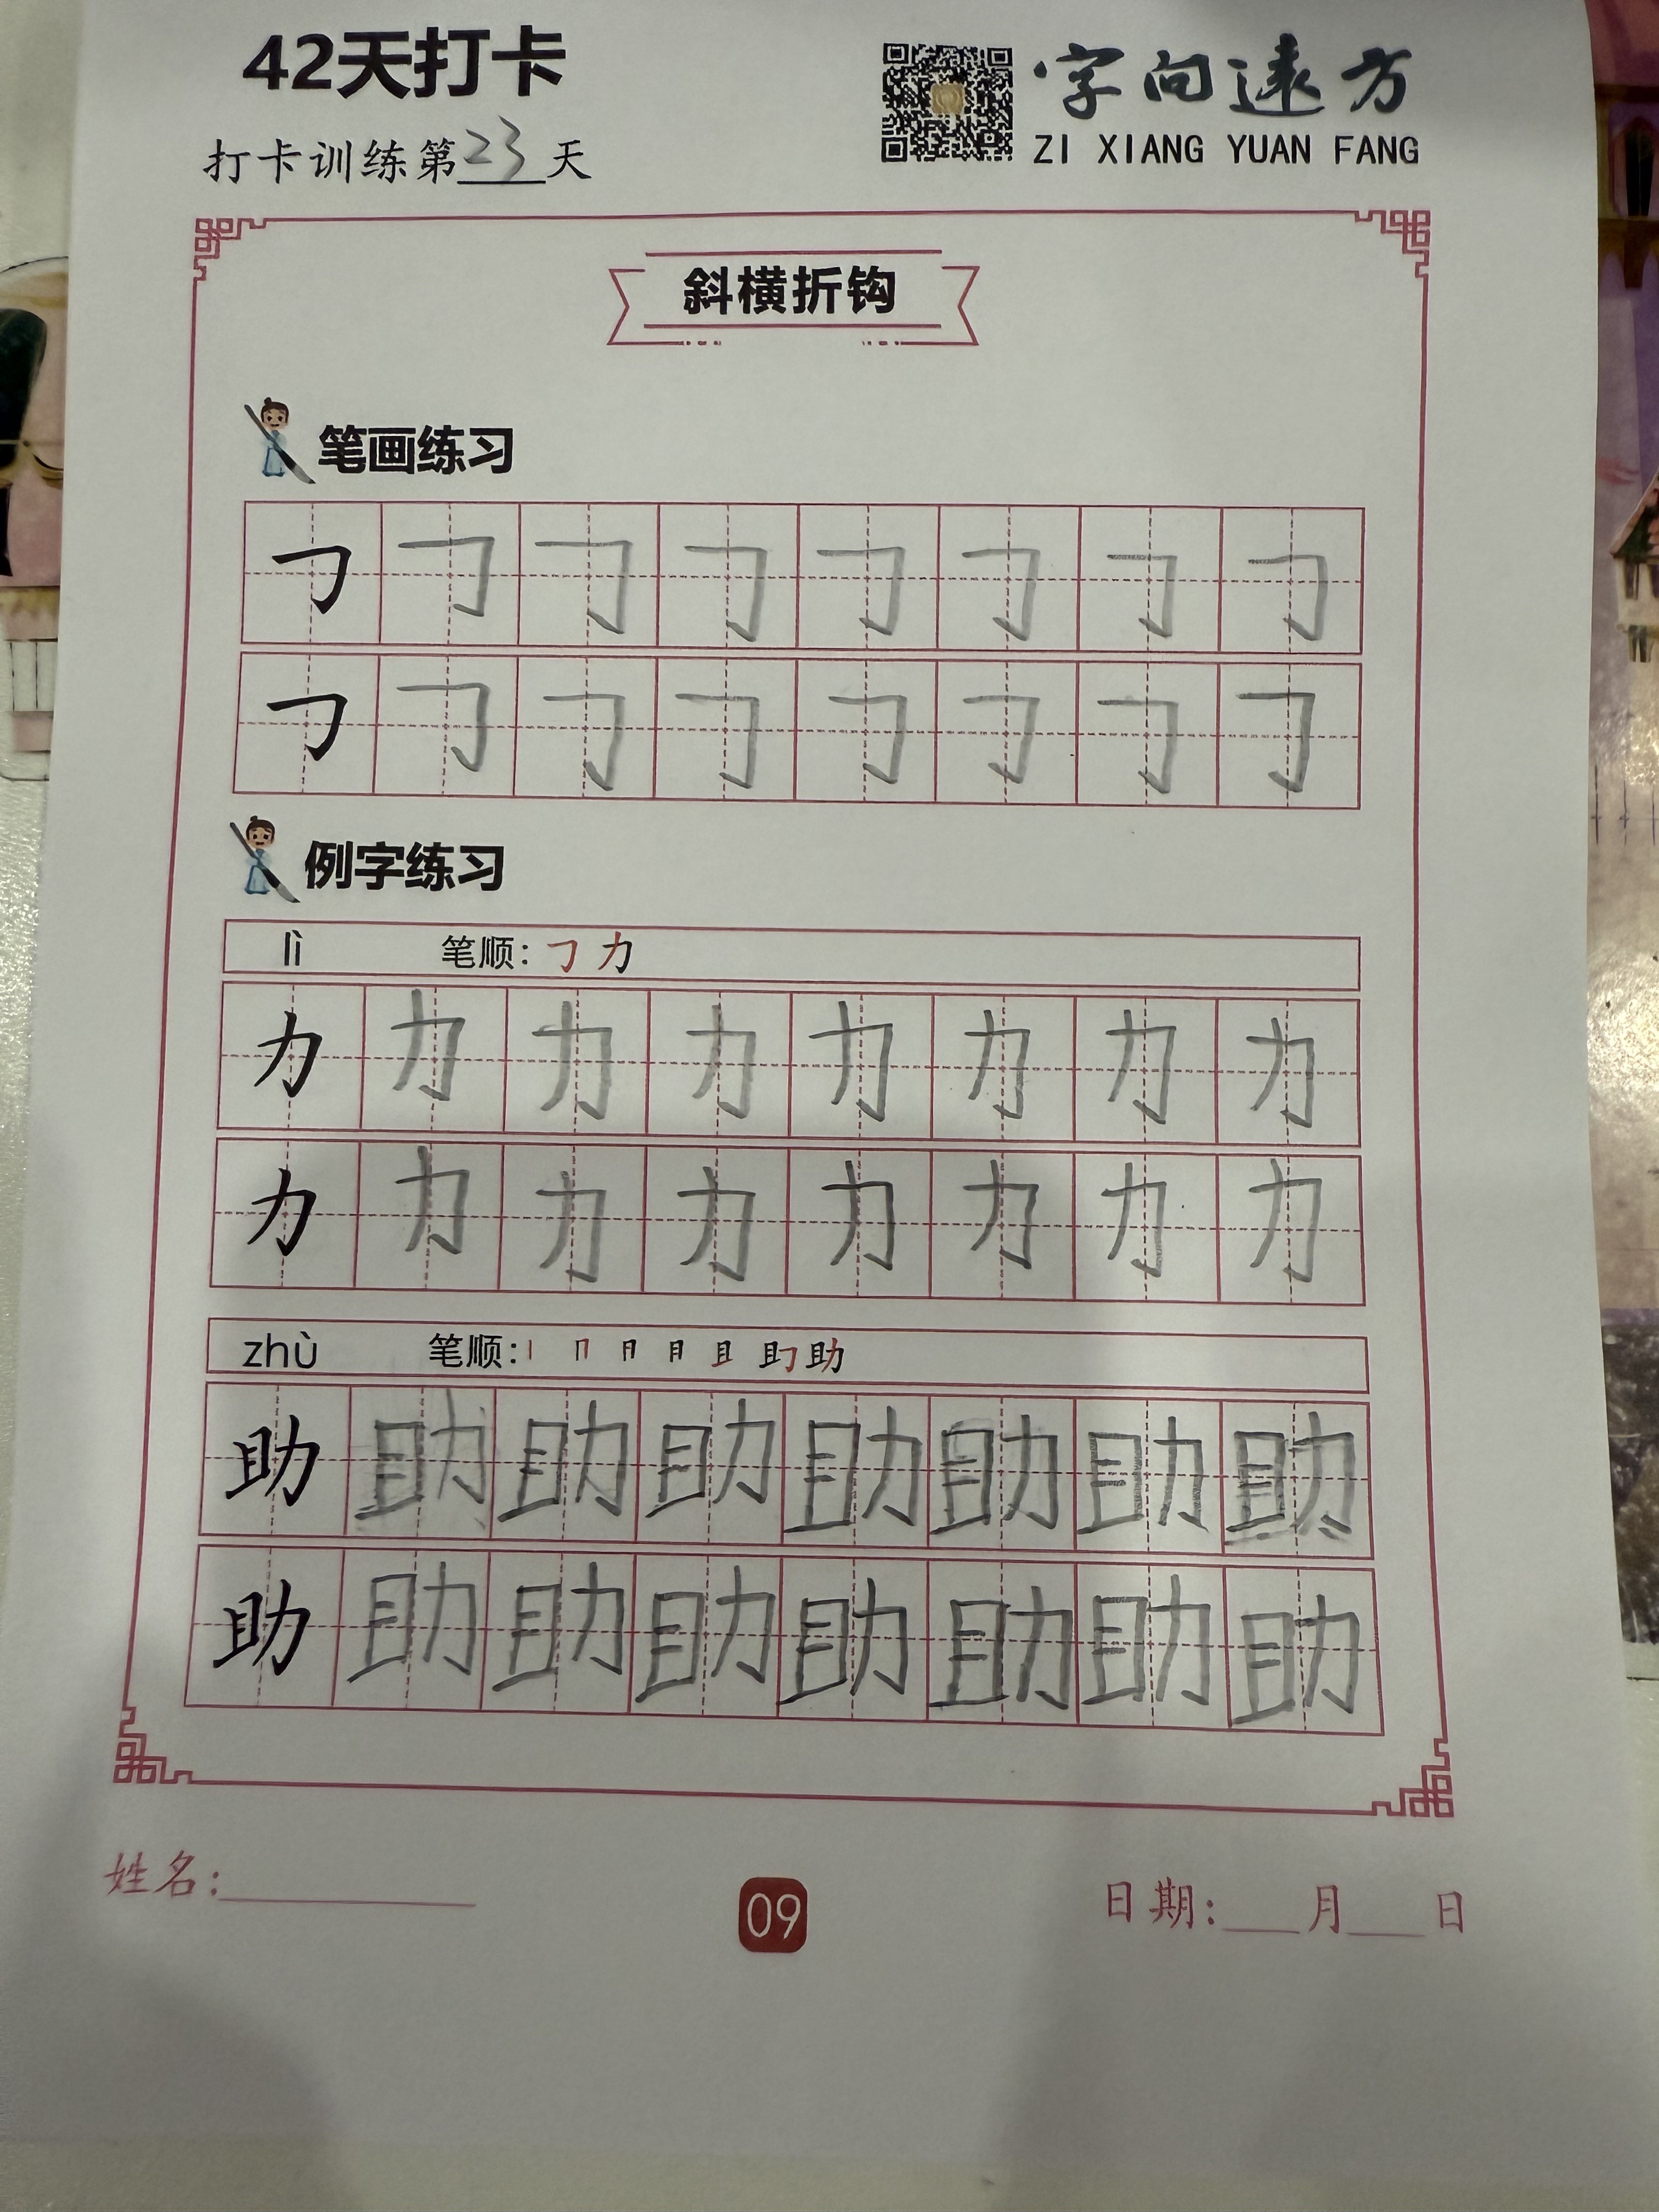 42天打卡
字向远方
ZI XIANG YUAN FANG
打卡训练第23天
斜横折钩
笔画练习
𠃌 𠃌 𠃌 𠃌 𠃌 𠃌 𠃌 𠃌
𠃌 𠃌 𠃌 𠃌 𠃌 𠃌 𠃌 𠃌
例字练习
lì 笔顺: 𠃌 力
力 力 力 力 力 力 力 力
力 力 力 力 力 力 力 力
zhù 笔顺: 丨 冂 月 月 且 助 助
助 助 助 助 助 助 助 助
助 助 助 助 助 助 助 助
姓名:
09
日期: 月 日